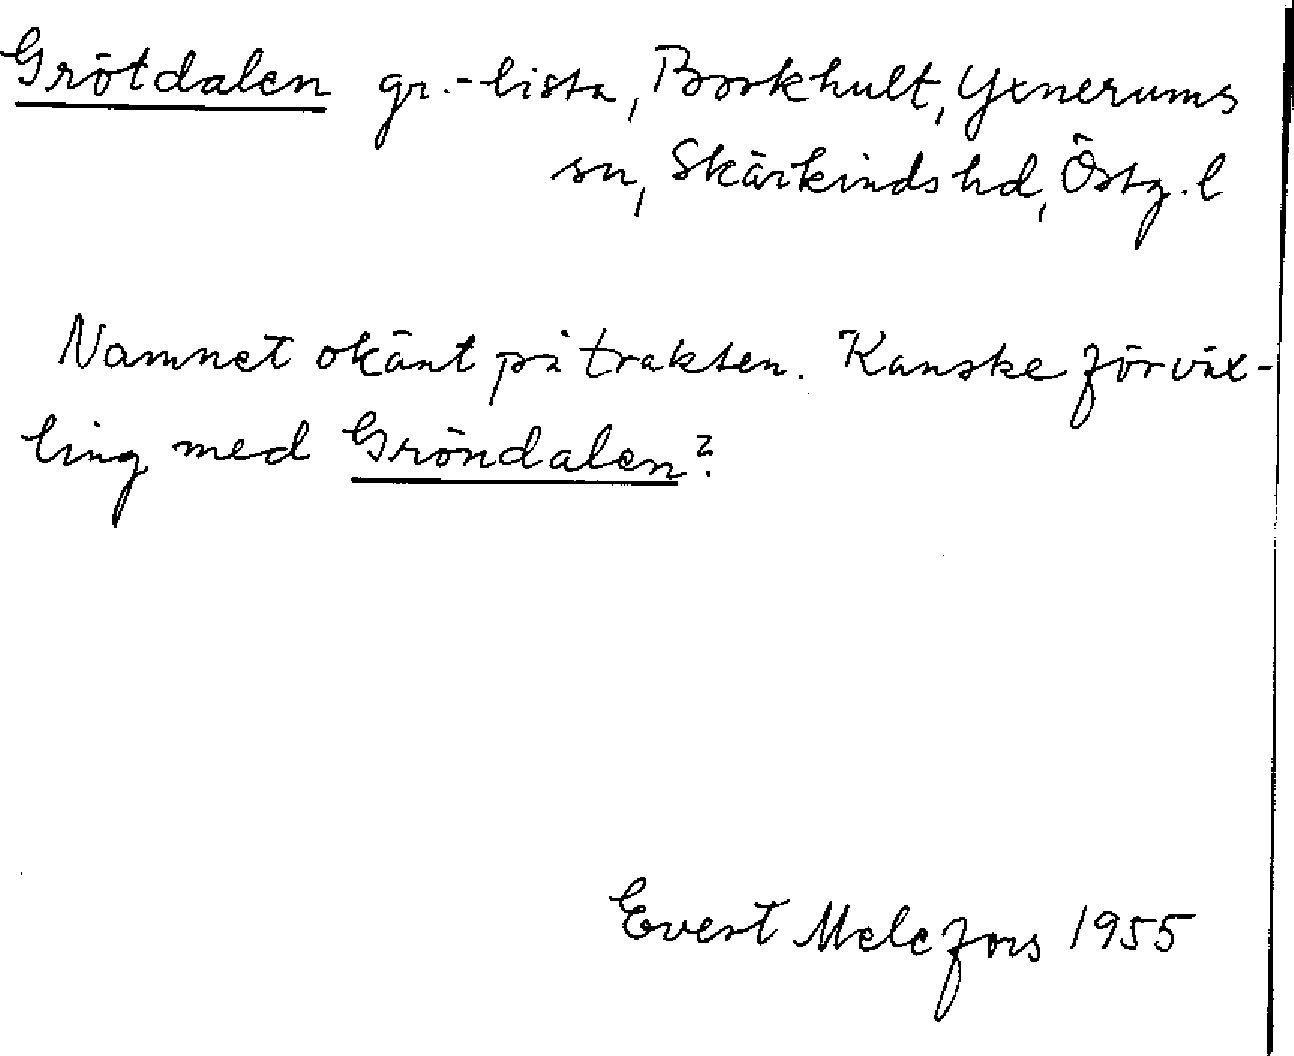 Grötdalen gr.-lista, Borkhult, Yxnerums
sn, Skärkinds hd, Östg. l
Namnet okänt på trakten. Kanske förväx-
ling med Gröndalen?
Evert Melefors 1955